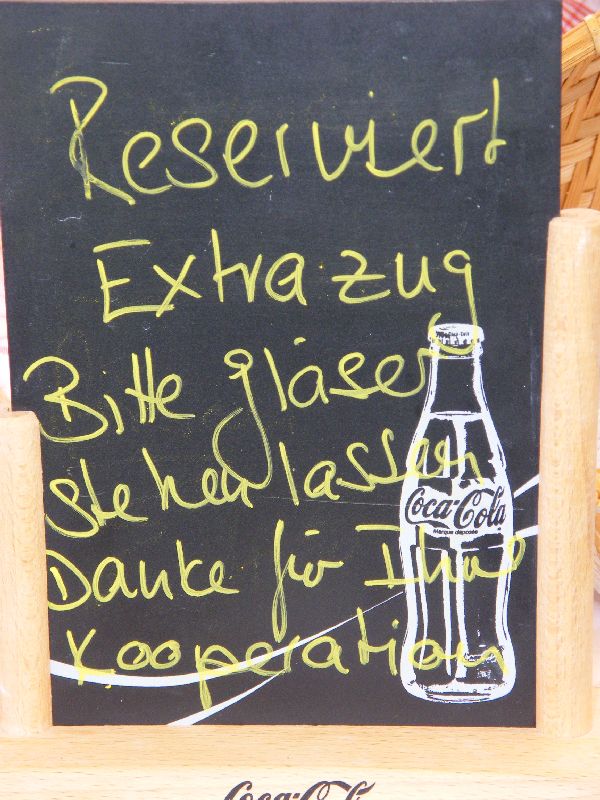 Reserviert
Extrazug
Bitte gläser
stehen lassen
Danke für Ihre
Kooperation
Coca-Cola
Marque déposée
Coca-Cola